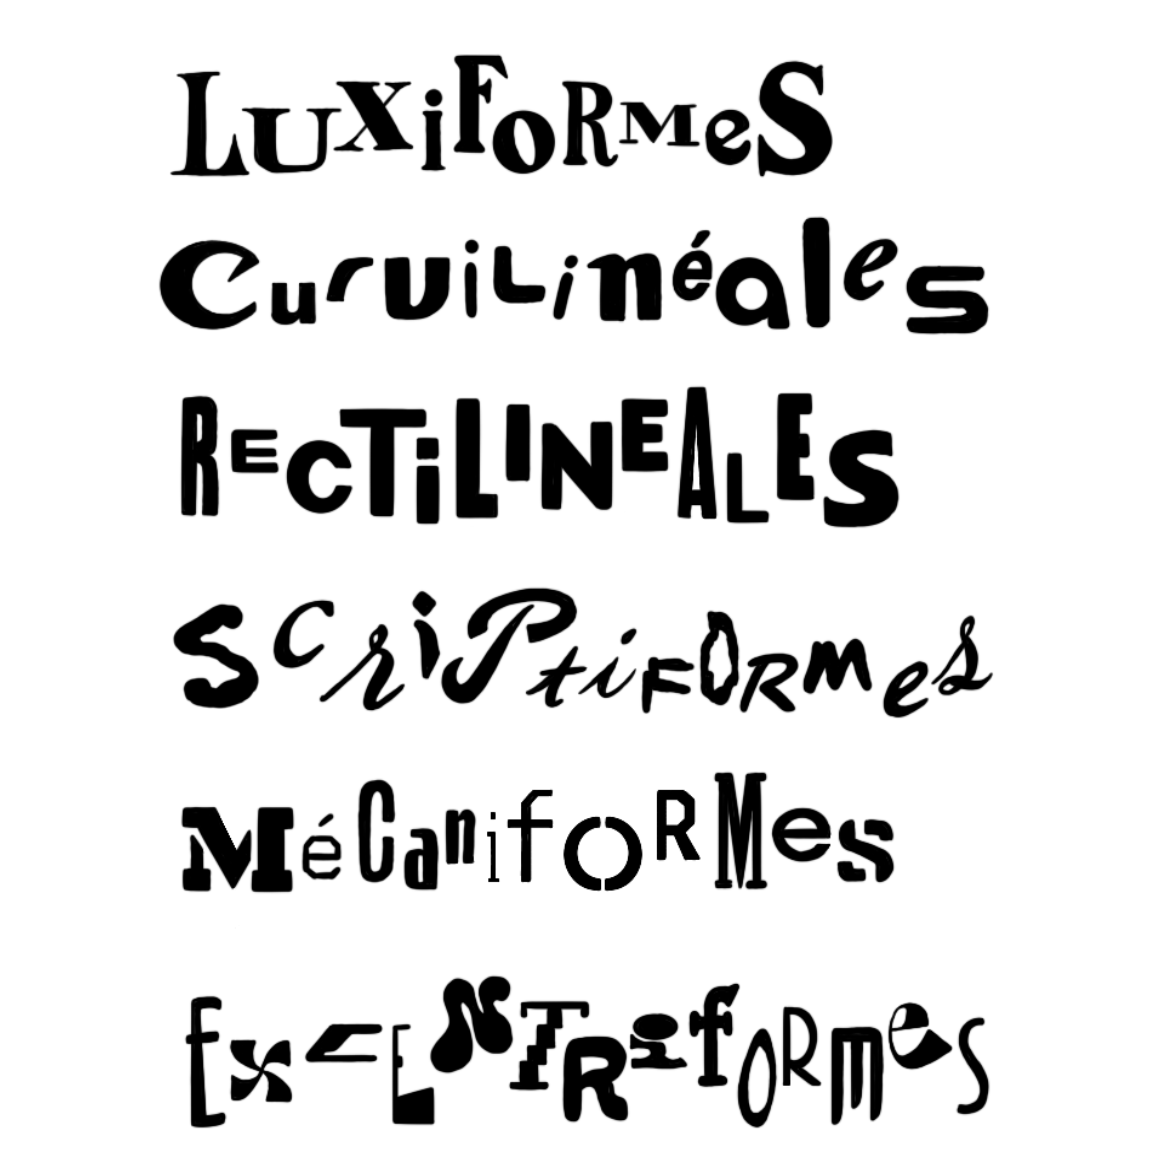 LUXiFoRMeS
CurviLinéales
RECTiLINEALES
ScriPtiFORmes
MéCanifoRMes
ExCENTRifORmes